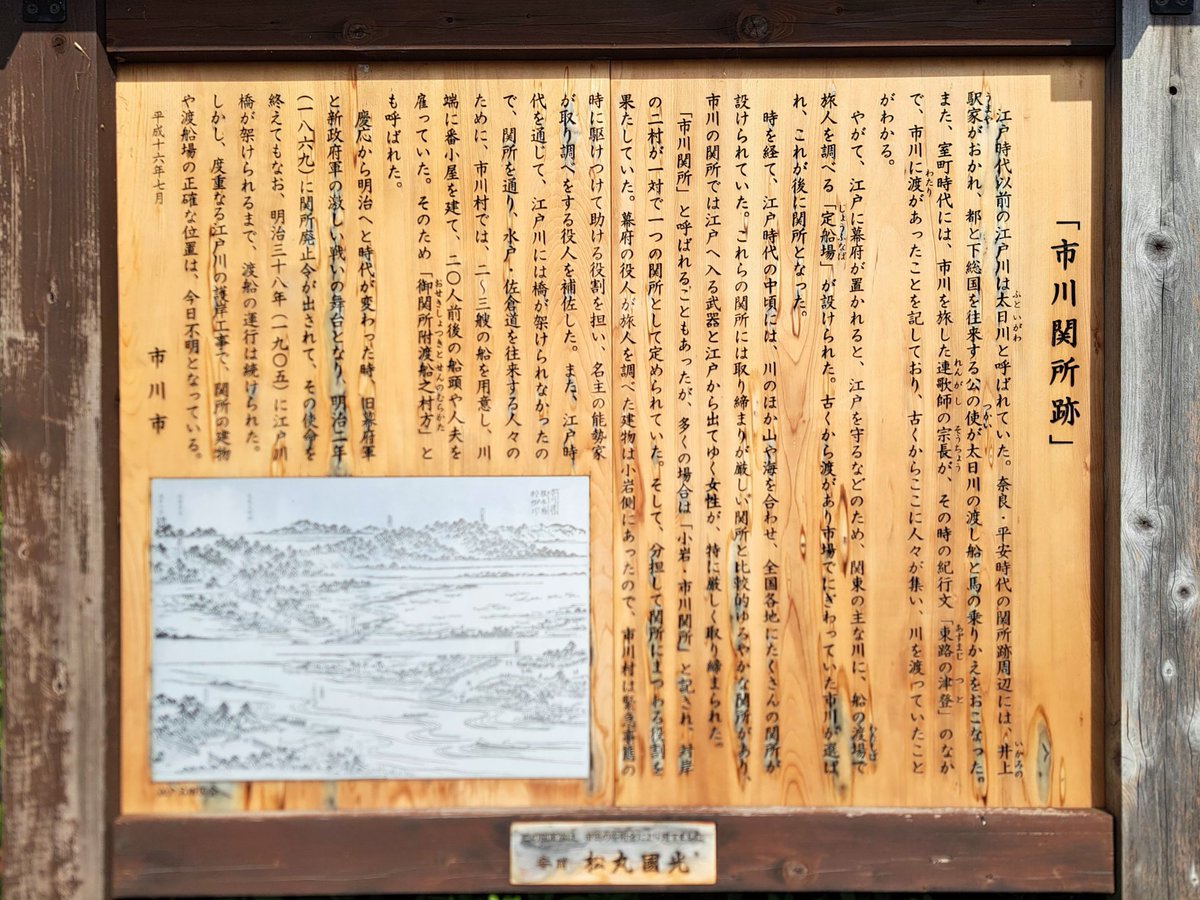 「市川関所跡」
ふといがわ いかみの
江戸時代以前の江戸川は太日川と呼ばれていた。奈良・平安時代の関所跡周辺には、井上
うまや つかい
駅家がおかれ、都と下総国を往来する公の使が太日川の渡し船と馬の乗りかえをおこなった。
れんがし そうちょう あずまじ つと
また、室町時代には、市川を旅した連歌師の宗長が、その時の紀行文「東路の津登」のなか
わたり
で、市川に渡があったことを記しており、古くからここに人々が集い、川を渡っていたこと
がわかる。
わたしば
やがて、江戸に幕府が置かれると、江戸を守るなどのため、関東の主な川に、船の渡場で
じょうふなば
旅人を調べる「定船場」が設けられた。古くから渡があり市場でにぎわっていた市川が選ば
れ、これが後に関所となった。
時を経て、江戸時代の中頃には、川のほか山や海を合わせ、全国各地にたくさんの関所が
設けられていた。これらの関所には取り締まりが厳しい関所と比較的ゆるやかな関所があり、
市川の関所では江戸へ入る武器と江戸から出てゆく女性が、特に厳しく取り締まられた。
「市川関所」と呼ばれることもあったが、多くの場合は「小岩・市川関所」と記され、対岸
の二村が一対で一つの関所として定められていた。そして、分担して関所にまつわる役割を
果たしていた。幕府の役人が旅人を調べた建物は小岩側にあったので、市川村は緊急事態の
時に駆けつけて助ける役割を担い、名主の能勢家
が取り調べをする役人を補佐した。また、江戸時
代を通じて、江戸川には橋が架けられなかったの
で、関所を通り、水戸・佐倉道を往来する人々の
ために、市川村では、二〜三艘の船を用意し、川
端に番小屋を建て、二〇人前後の船頭や人夫を
おせきしょつきとせんのむらかた
雇っていた。そのため「御関所附渡船之村方」と
も呼ばれた。
慶応から明治へと時代が変わった時、旧幕府軍
と新政府軍の激しい戦いの舞台となり、明治二年
（一八六九）に関所廃止令が出されて、その使命を
終えてもなお、明治三十八年（一九〇五）に江戸川
橋が架けられるまで、渡船の運行は続けられた。
しかし、度重なる江戸川の護岸工事で、関所の建物
や渡船場の正確な位置は、今日不明となっている。
平成十六年七月
市川市
松丸國光